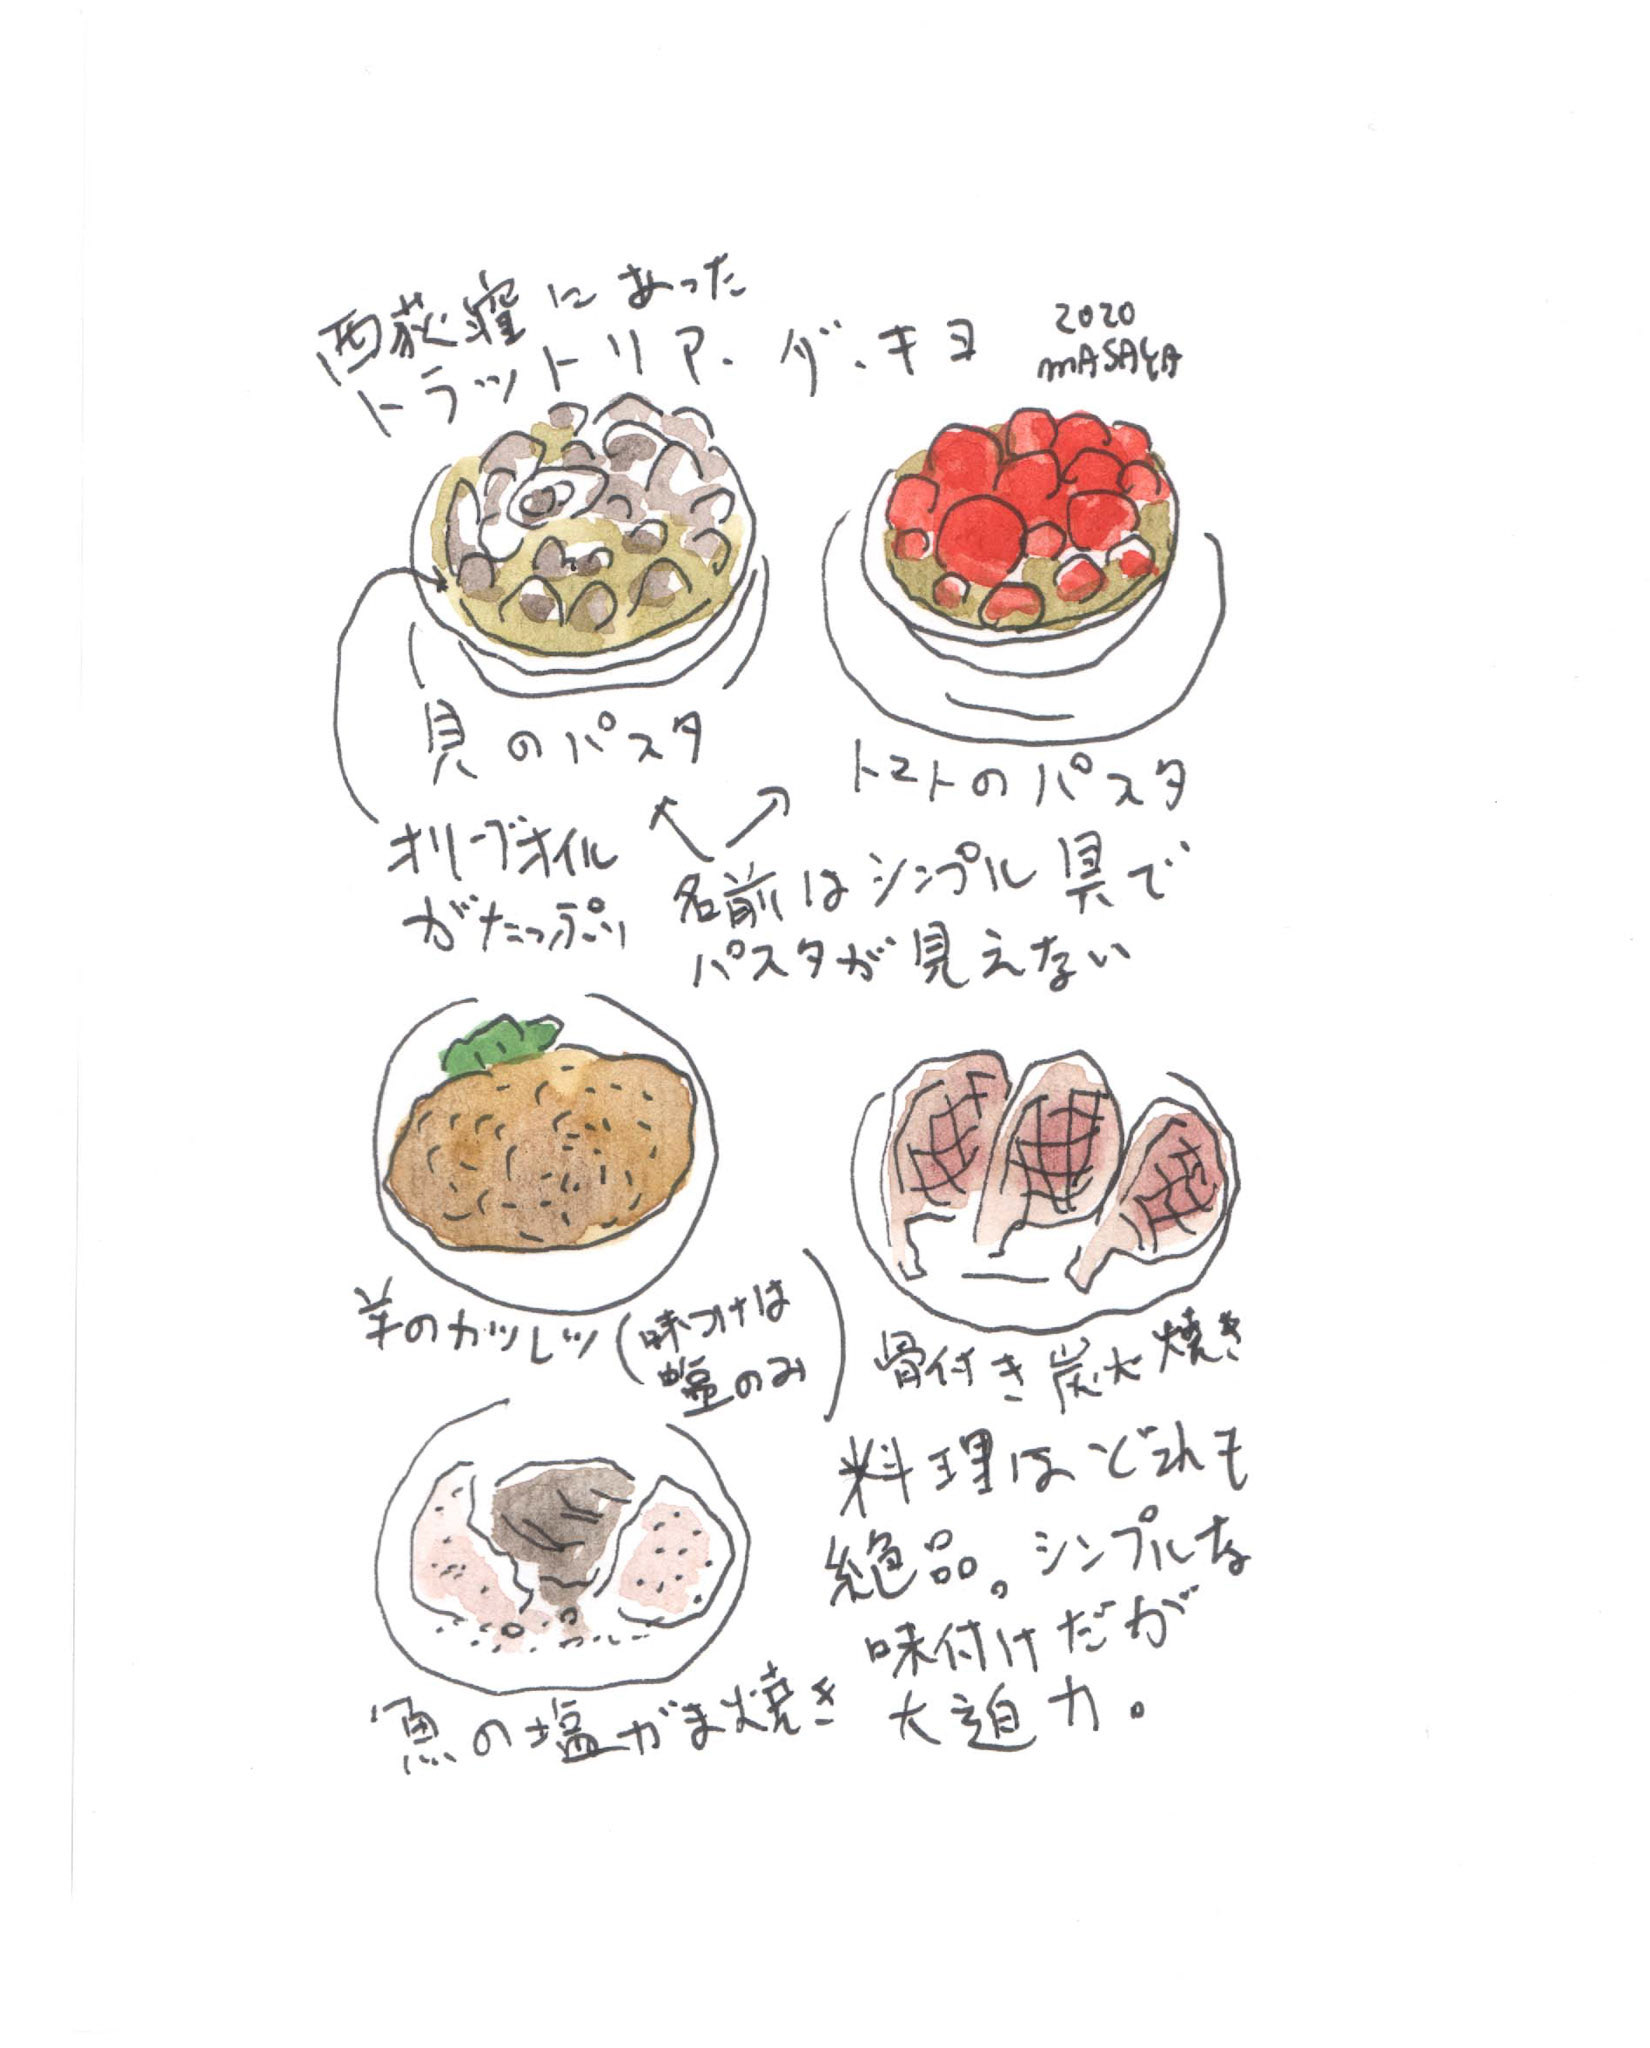 西荻窪にあった
トラットリア・ダ・キヨ
2020
MASAYA
貝のパスタ
トマトのパスタ
オリーブオイル
がたっぷり
名前はシンプル具で
パスタが見えない
羊のカツレツ(味つけは
塩のみ)
骨付き炭火焼き
魚の塩がま焼き
料理はどれも
絶品。シンプルな
味付けだが
大迫力。